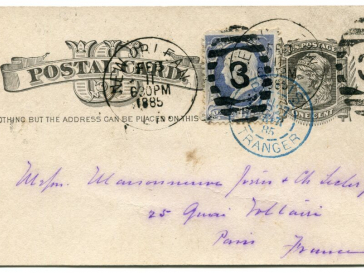 POSTAL CARD
NEW ORLEANS
6 30 PM
1885
3
U.S. POSTAGE
ONE CENT
85
ETRANGER
NOTHING BUT THE ADDRESS CAN BE PLACED ON THIS
Messrs. Maisonneuve Frères & Ch. Leclerc
25 Quai Voltaire
Paris
France